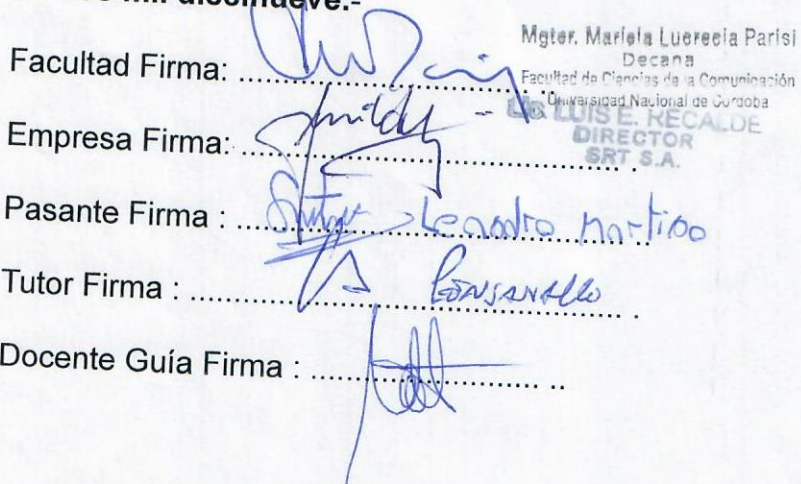 mil diecinueve.-
Mgter. Mariela Lucrecia Parisi
Decana
Facultad de Ciencias de la Comunicación
Universidad Nacional de Cordoba
Facultad Firma: ..........
Lic LUIS E. RECALDE
DIRECTOR
SRT S.A.
Empresa Firma: ..........
Pasante Firma : .......... Leandro Martino
Tutor Firma : ..........
Docente Guía Firma : ..........